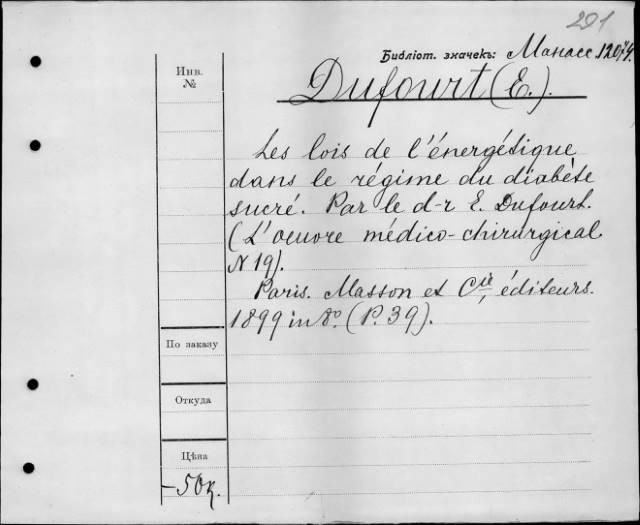 291
Библіот. значекъ: Манасс. 120
Инв.
№
Dufourt (E.).
Les lois de l'énergétique
dans le régime du diabète
sucré. Par le d-r E. Dufourt.
(L'oeuvre médico-chirurgical
N 19).
Paris. Masson et Cie, éditeurs.
1899 in 8o. (P. 39).
По заказу
Откуда
Цѣна
-50к.